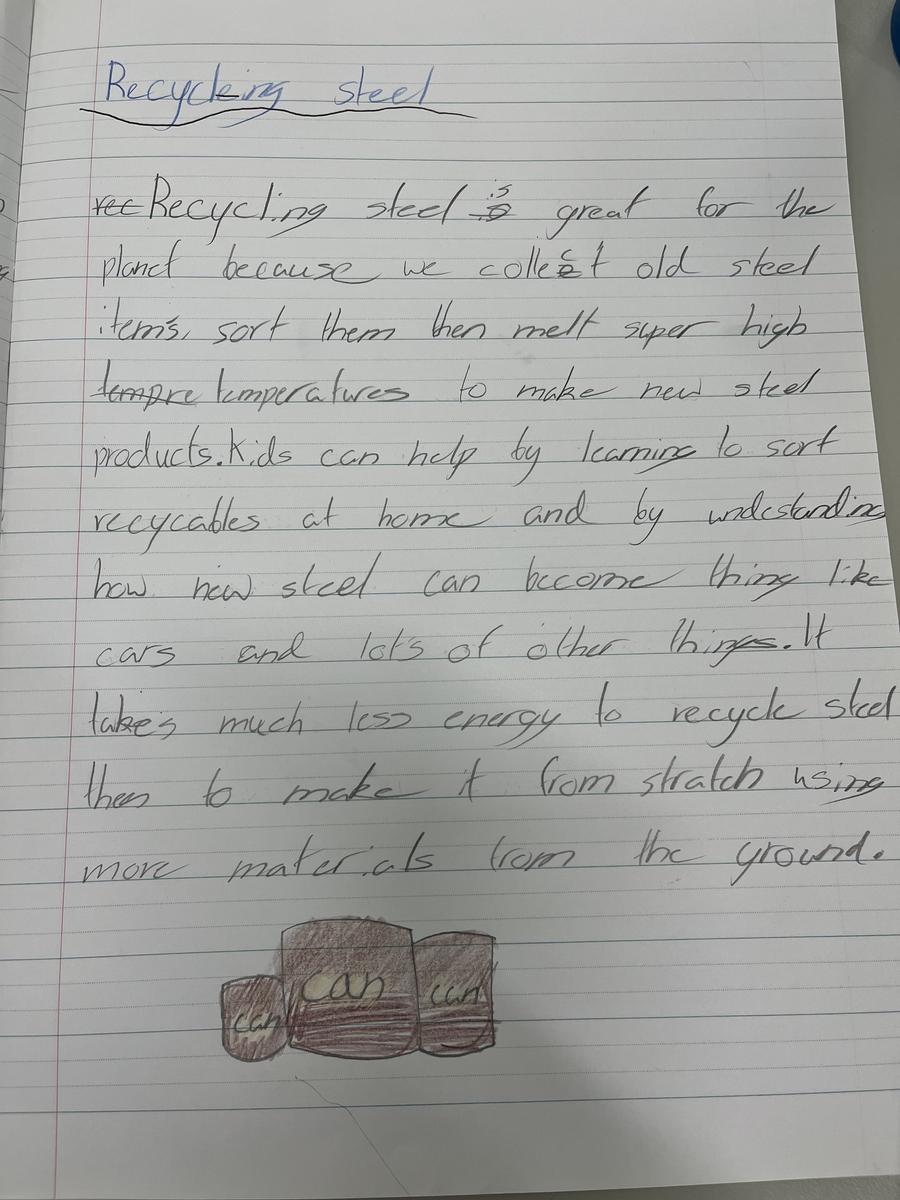 Recycleing steel
rec Recycling steel is great for the
planet because we collect old steel
items, sort them then melt super high
tempre temperatures to make new steel
products. Kids can help by learning to sort
recycables at home and by undestanding
how new steel can become thing like
cars and lots of other things. It
takes much less energy to recycle steel
then to make it from stratch using
more materials from the ground.
can can can